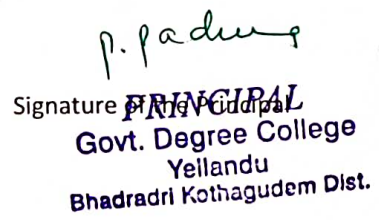 P. Padma
Signature of the Principal
PRINCIPAL
Govt. Degree College
Yellandu
Bhadradri Kothagudem Dist.